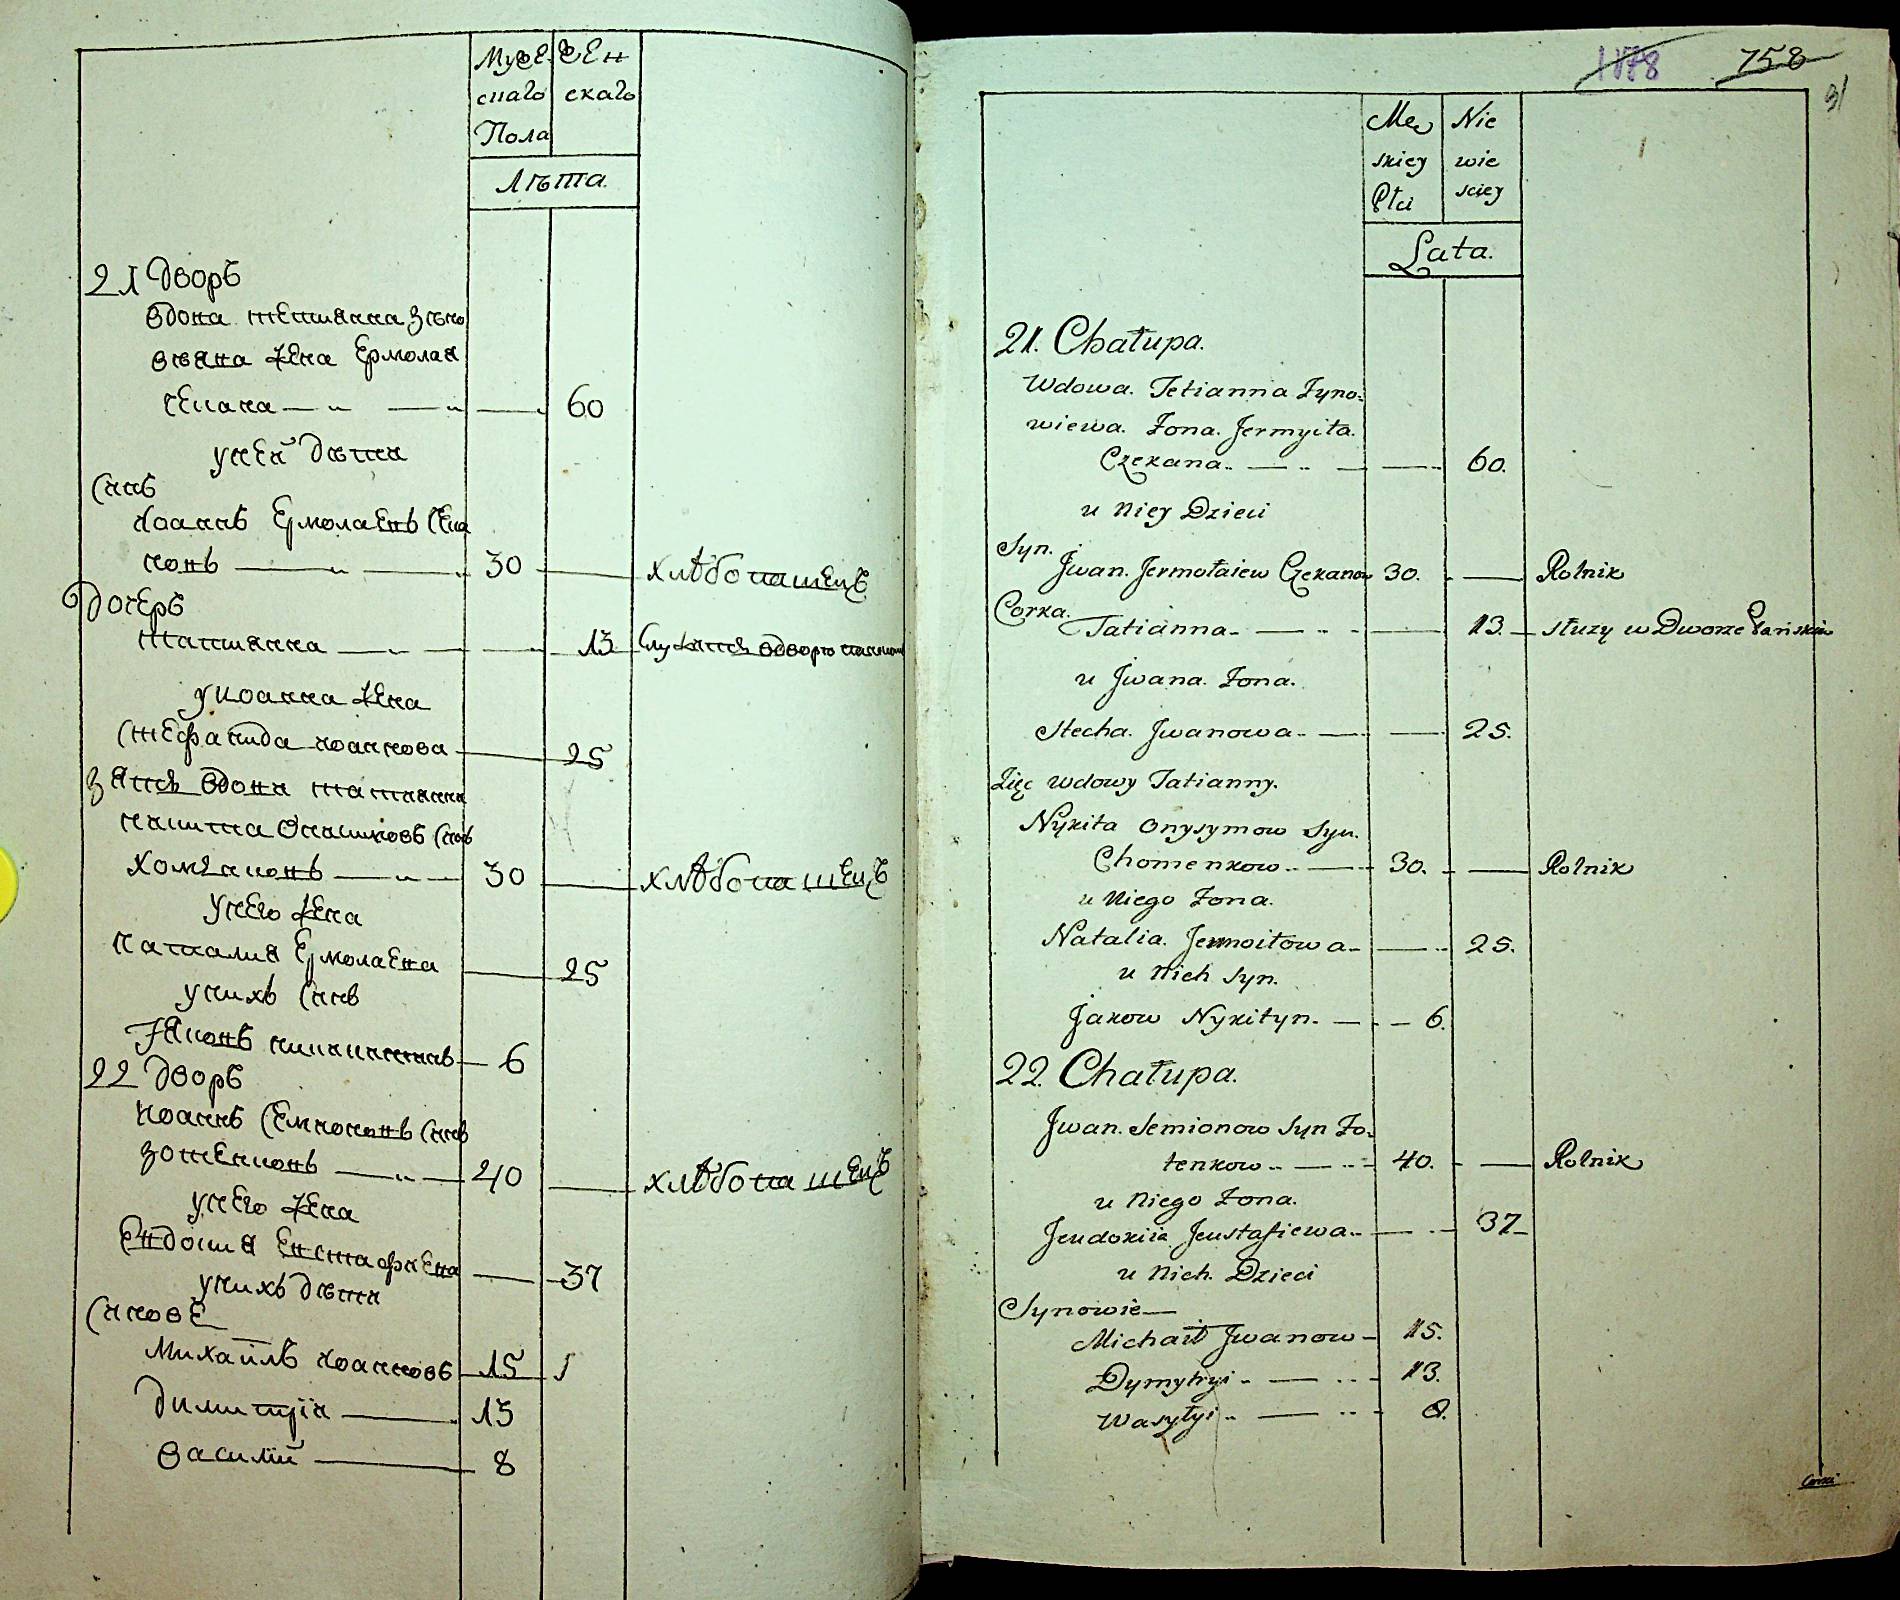 Муже Жен
скаго скаго
Пола
Лѣта.
21 Дворъ
вдова Тетяанна Зѣно
вѣева жена Ермолая
Чекана 60
уней Дѣти
Сынъ
Иоаннъ Ермолаевъ Чека
новъ 30 хлѣбопашецъ
Дочеръ
Татиянна 13 Служитъ вдворѣ панском
уиоанна жена
Стефанида иоаннова 25
Зять вдовы татианны
никита Онисимовъ Сынъ
хомянковъ 30 хлѣбопашецъ
унего жена
наталия Ермолаева 25
унихъ Сынъ
Яковъ никитинъ 6
22 Дворъ
Иоаннъ Семионовъ Сынъ
зотенковъ 40 хлѣбопашецъ
унего жена
Евдокия Евстафиева 37
унихъ дѣти
Сынове
Михаилъ иоанновъ 15
Димитрій 13
Василій 8
1078 758
31
Mę Nie
skiey wie
Płci sciey
Lata.
21. Chałupa.
Wdowa. Tetianna Zyno-
wiewa. Zona. Jermyiła.
Czekana.. 60.
u Niey Dzieci
Syn.
Jwan. Jermołaiew Czekanow 30. Rolnik
Corka.
Tatianna 13. służy w Dworze Pańskim
u Jwana. Zona.
Stecha. Jwanowa 25.
Zięc wdowy Tatianny.
Nykita Onysymow Syn.
Chomenkow.. 30. Rolnik
u Niego Zona.
Natalia. Jermoiłowa 25.
u Nich Syn.
Jakow Nykityn. 6.
22. Chałupa.
Jwan. Semionow Syn Zo-
tenkow.. 40. Rolnik
u Niego Zona.
Jeudokiia Jeustafiewa.. 37
u Nich. Dzieci
Synowie
Michaił Jwanow 15.
Dymytryi 13.
Wasyłyi 8.
Corki